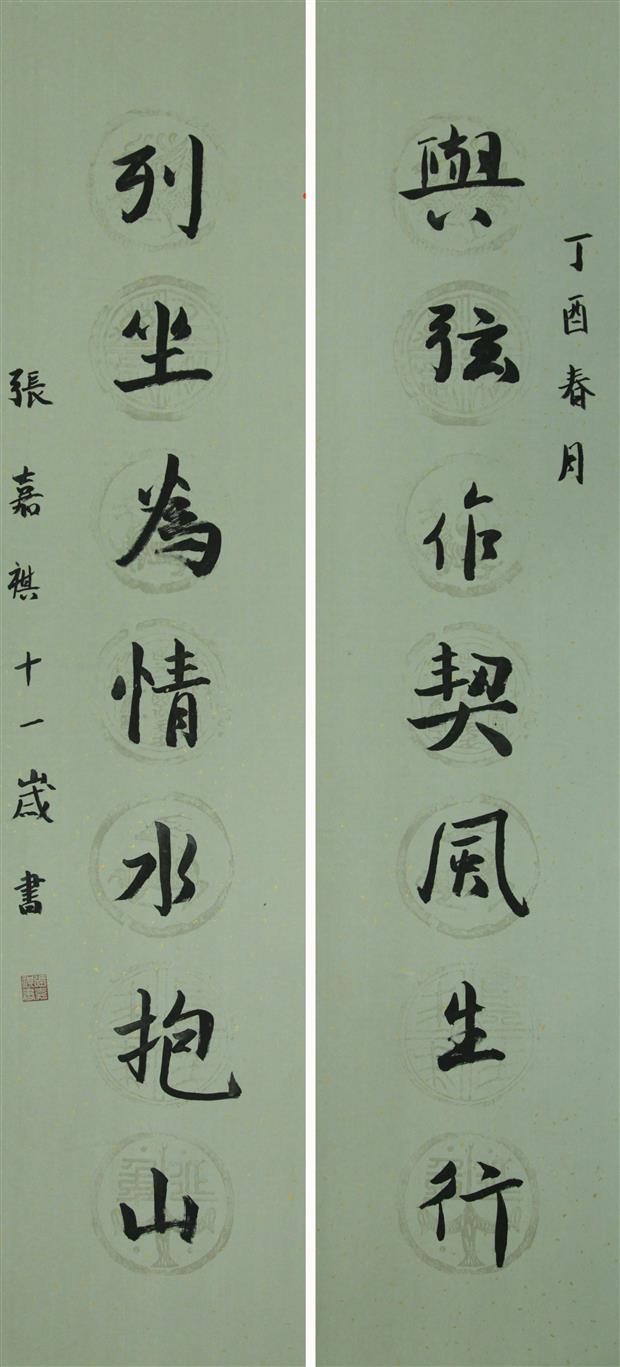 丁酉春月
與弦作契風生行
列坐為情水抱山
張嘉祺十一歲書